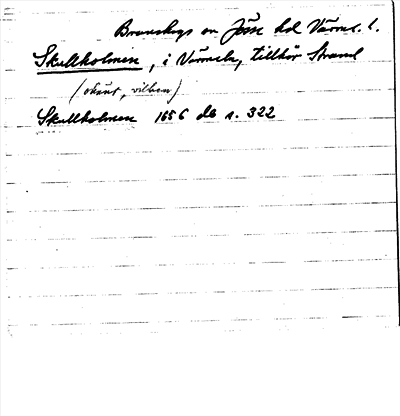 Brunskogs sn Jösse hd Värml. l.
Skallholmen, i Värmeln, tillhör Strand
(okänt, vilken)
Skallholmen 1656 db s. 322